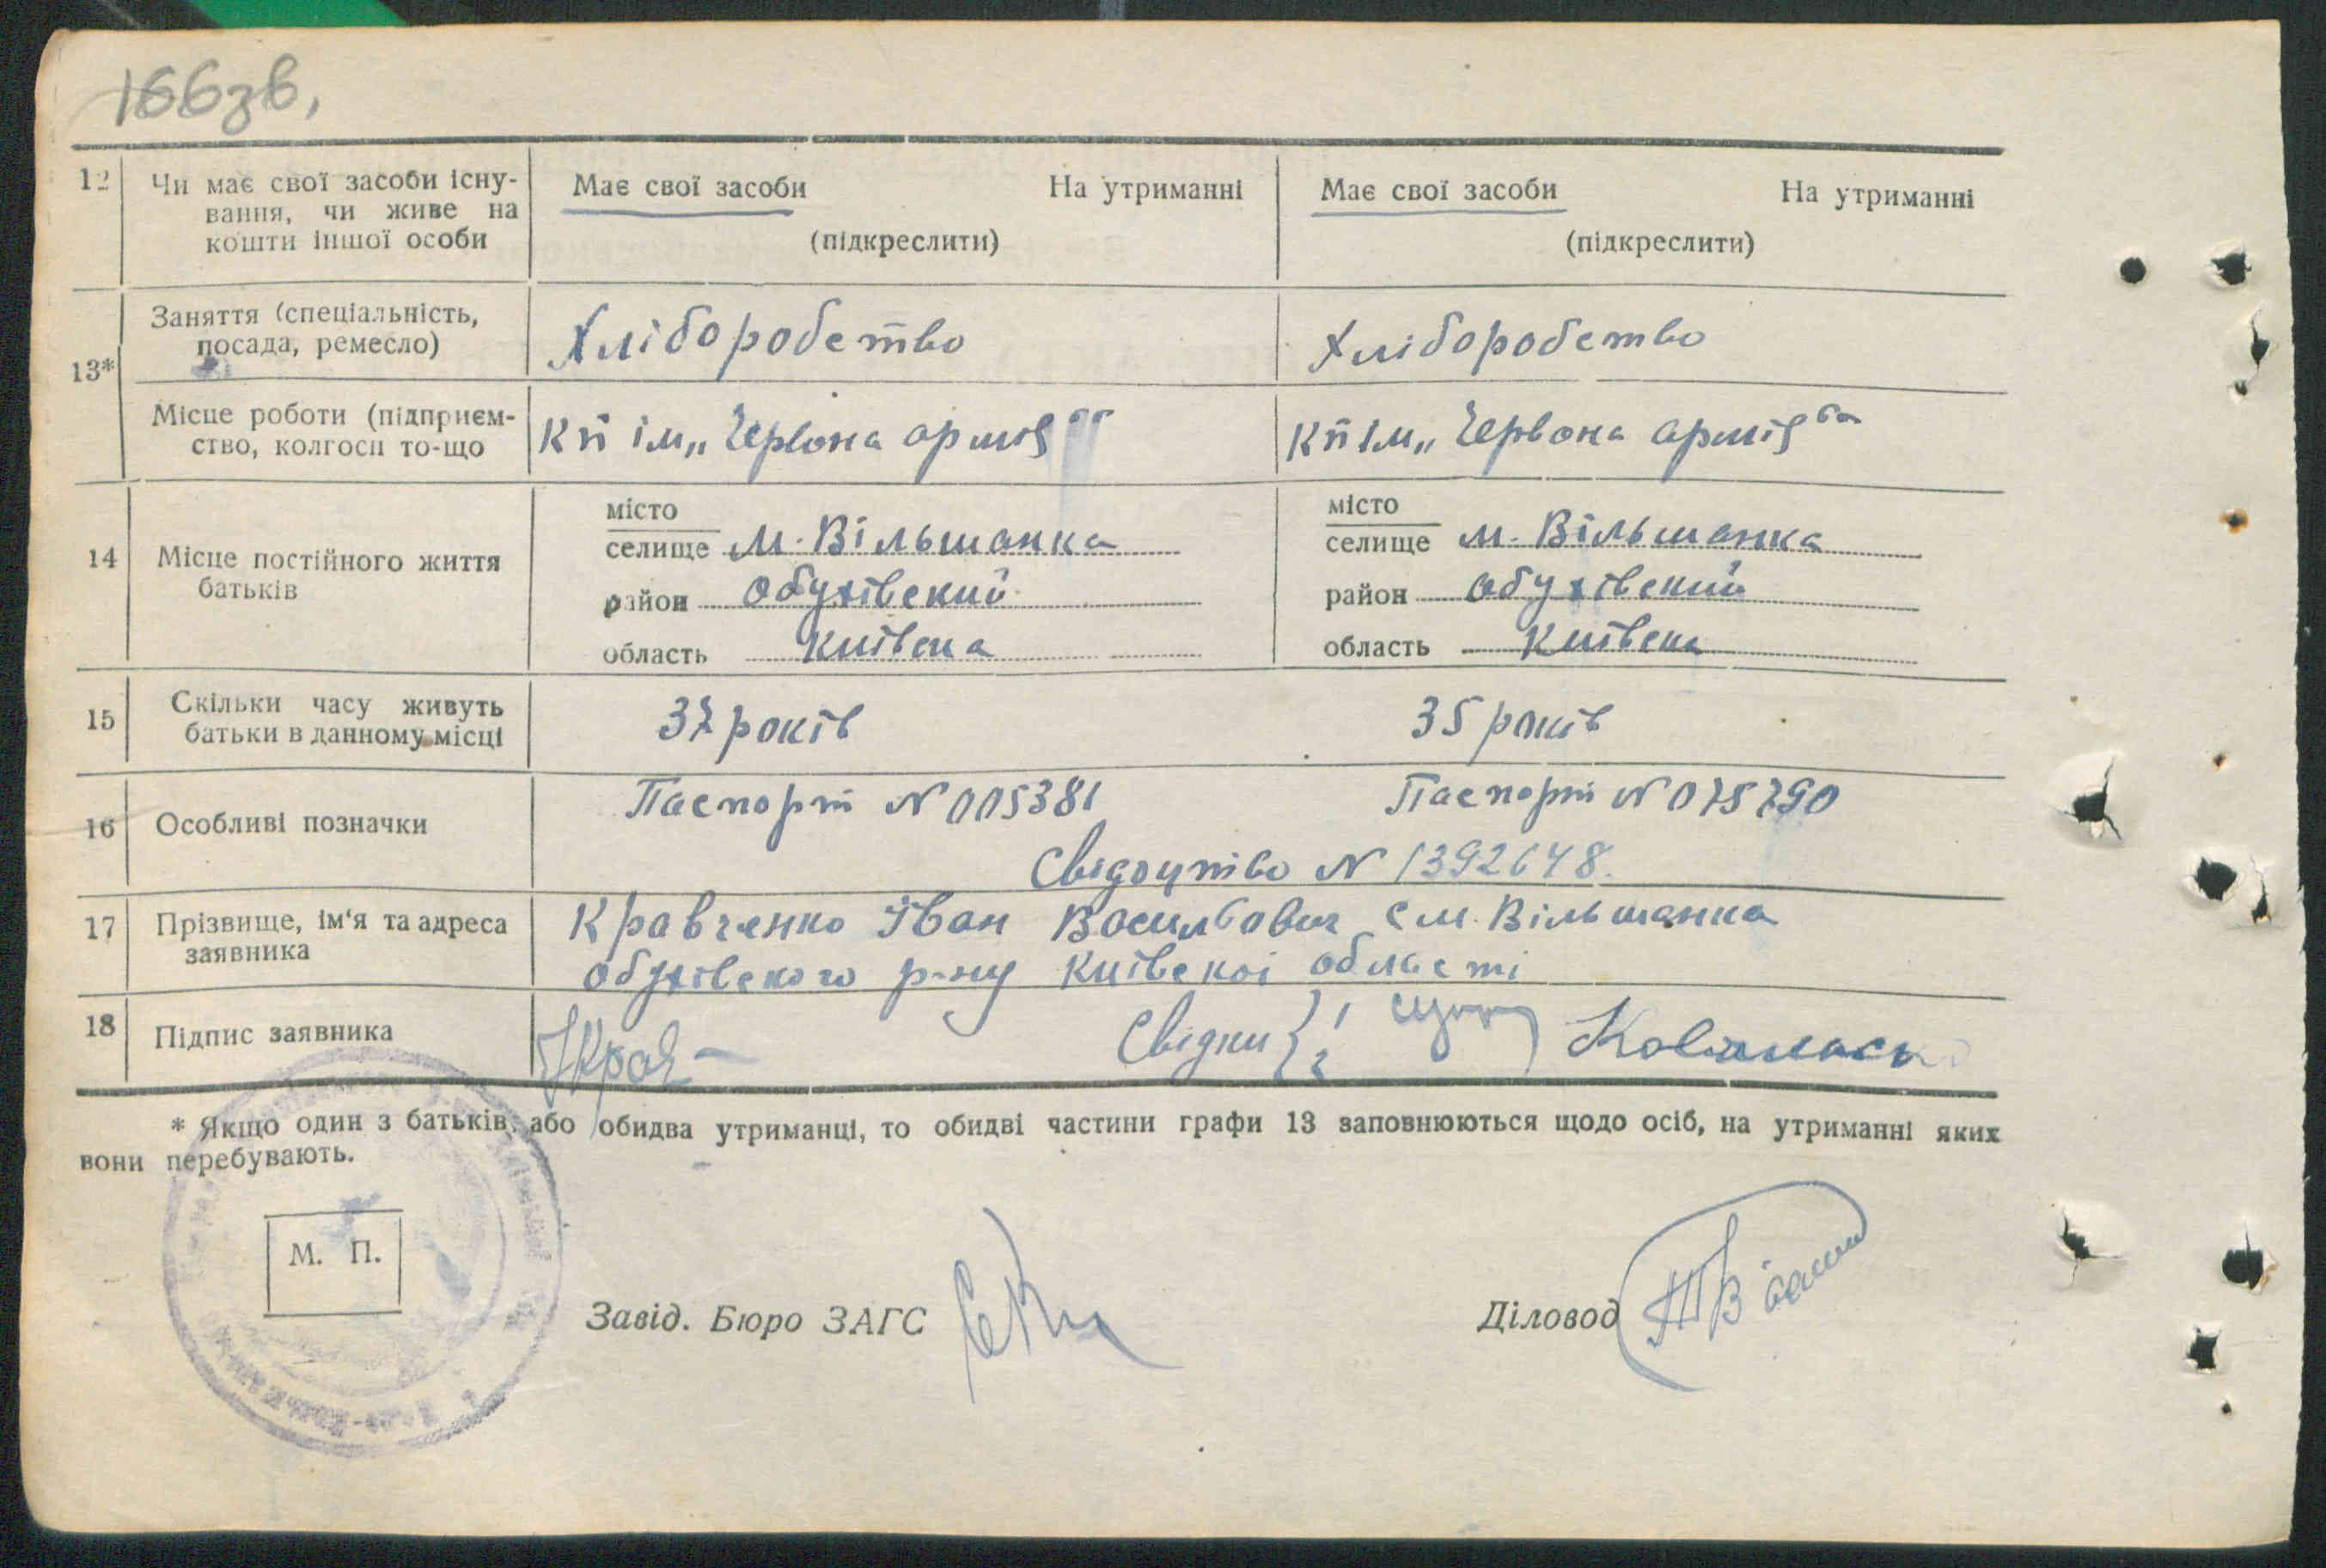 166зв,
12 Чи має свої засоби існу-
вання, чи живе на
кошти іншої особи
Має свої засоби На утриманні
(підкреслити)
Має свої засоби На утриманні
(підкреслити)
13*
Заняття (спеціальність,
посада, ремесло)
Хліборобство
Хліборобство
Місце роботи (підприєм-
ство, колгосп то-що
Кп ім „Червона армія"
Кп ім „Червона армія"
14 Місце постійного життя
батьків
місто
селище м. Вільшанка
район Обухівский
область Київска
місто
селище м. Вільшанка
район Обухівский
область Київска
15 Скільки часу живуть
батьки в данному місці
37 років
35 років
16 Особливі позначки
Паспорт № 005381
Паспорт № 075790
Свідоцтво № 1392648.
17 Прізвище, ім'я та адреса
заявника
Кравченко Іван Васильович с м. Вільшанка
Обухівского р-ну Київскоі області
18 Підпис заявника
Свідки 1
2
* Якщо один з батьків, або обидва утриманці, то обидві частини графи 13 заповнюються щодо осіб, на утриманні яких
вони перебувають.
М. П.
Завід. Бюро ЗАГС
Діловод